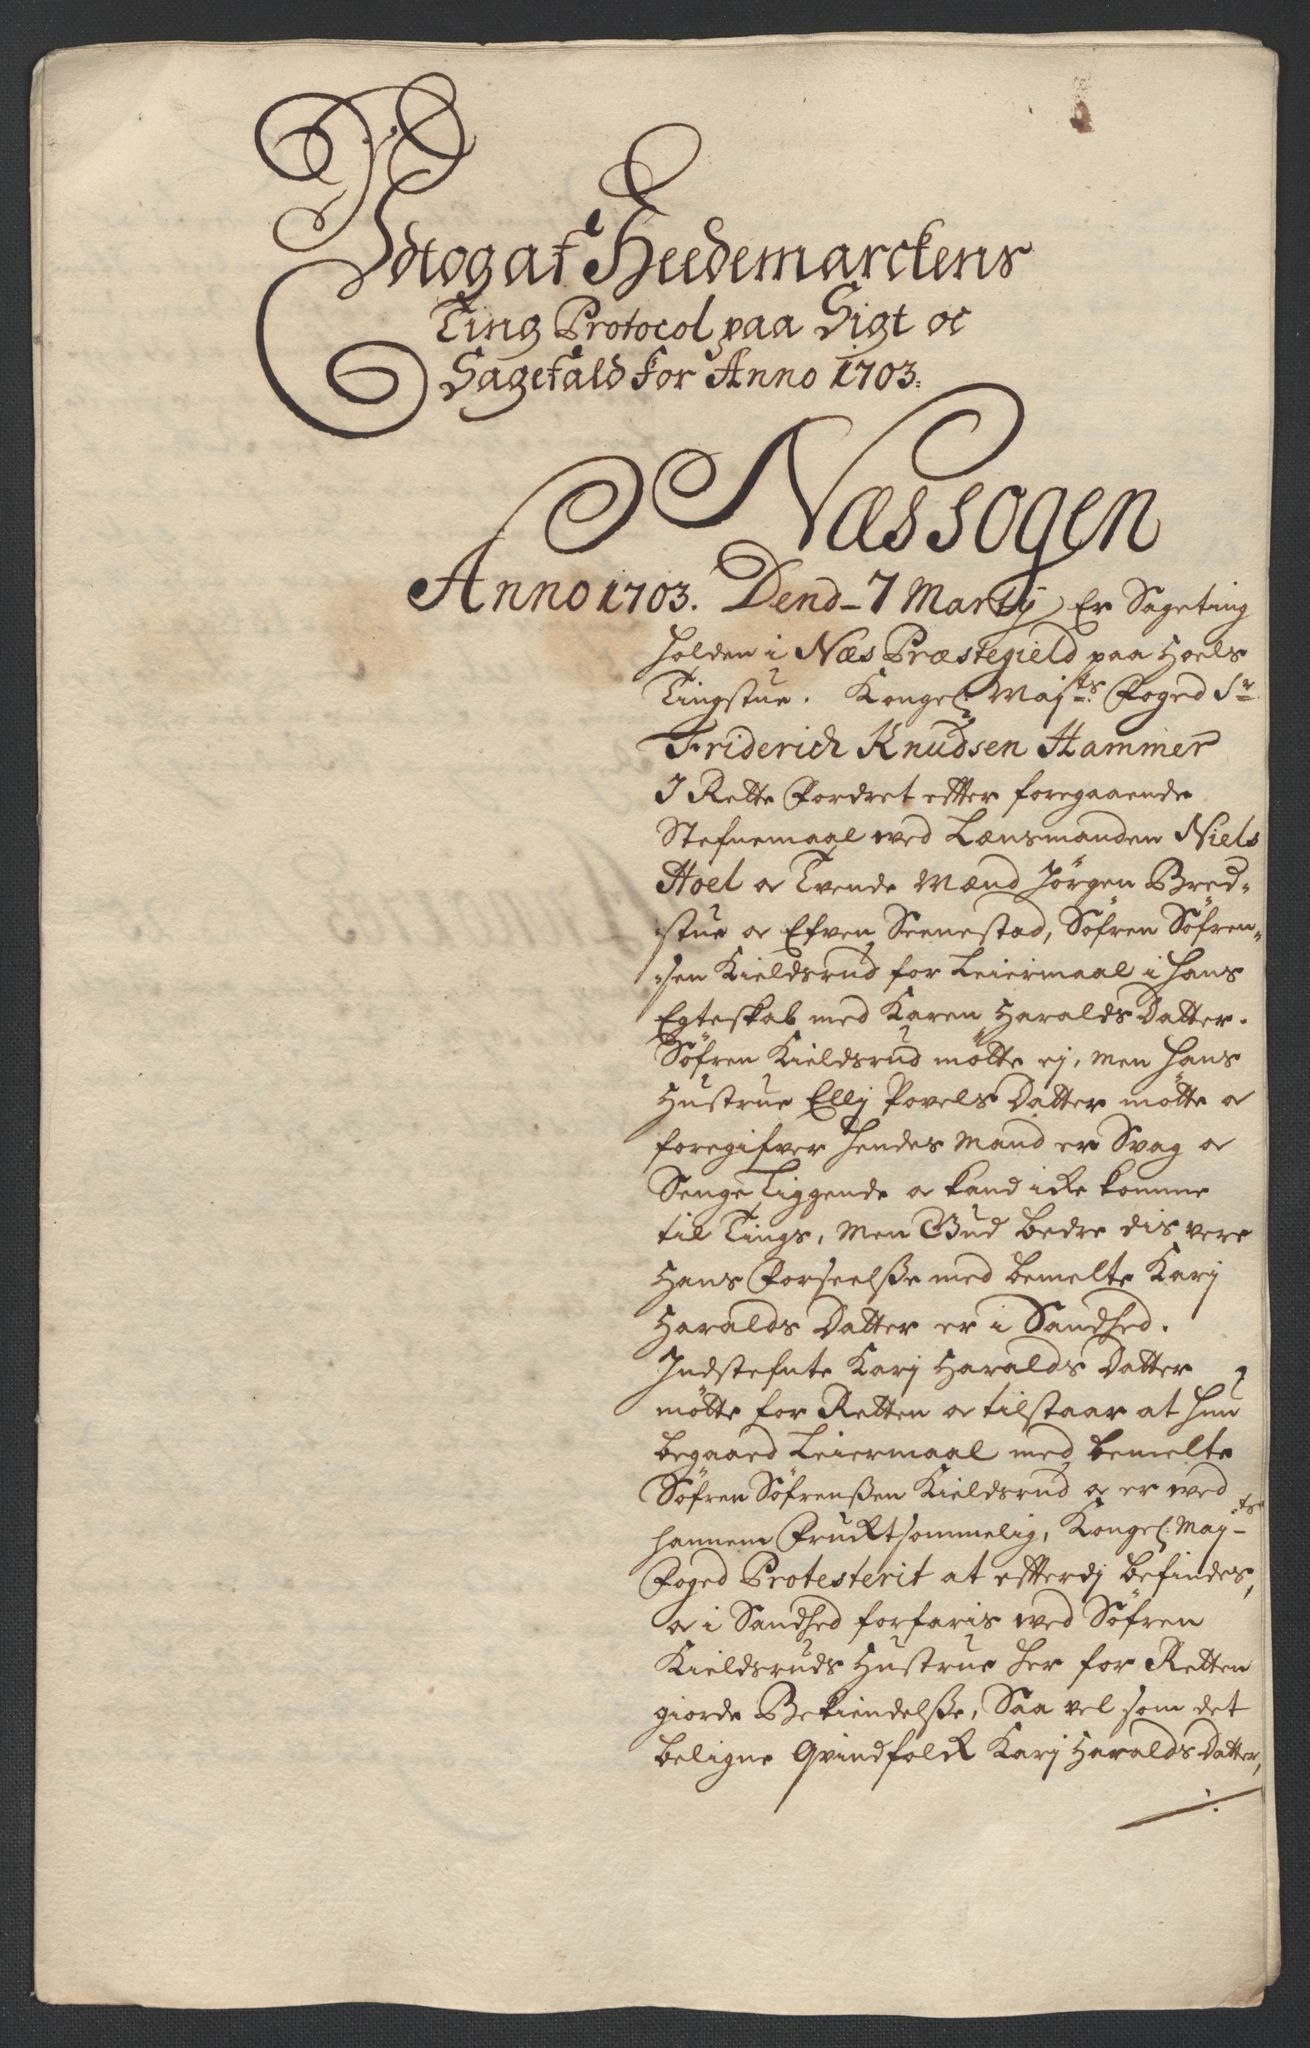 Udtog af Heedemarckens
Ting Protocol paa Sigt oc
Sagefald for Anno 1703.
Næssogen
Anno 1703. Dend 7 Martij Er Sageting
holden i Næs Præstegield paa Hoels
Tingstue. Kongel: Maj:ts Foged Sr.
Friderich Knudsen Hammer
I Rette Fordret efter foregaaende
Stefnemaal ved Lænsmanden Niels
Hoel oc Tvende Mænd Jörgen Bred-
stue oc Efven Seenestad, Söfren Söfren-
sen Kieldsrud for Leiermaal i Hans
Egteskab med Karen Haralds Datter.
Söfren Kieldsrud mötte ej, Men Hans
Hustrue Ellj Povels Datter mötte oc
foregifver Hendes Mand er Svag oc
Senge Liggende oc kand icke komme
til Tings, Men Gud bedre dis vere
Hans Forseelsse med bemelte Karj
Haralds Datter er i Sandhed.
Indstefnte Karj Haralds Datter
mötte for Retten oc tilstaar at Hun
begaaed Leiermaal med bemelte
Söfren Söfrenssen Kieldsrud oc er ved
hannem Frucktsommelig, Kongel: Maj:ts
Foged Protesterit at efterdj befindes,
oc i Sandhed forfaris ved Söfren
Kieldsruds Hustrue her for Retten
giorde Bekiendelsse, Saa vel som det
beligne Qvindfolck Karj Haralds Datter,